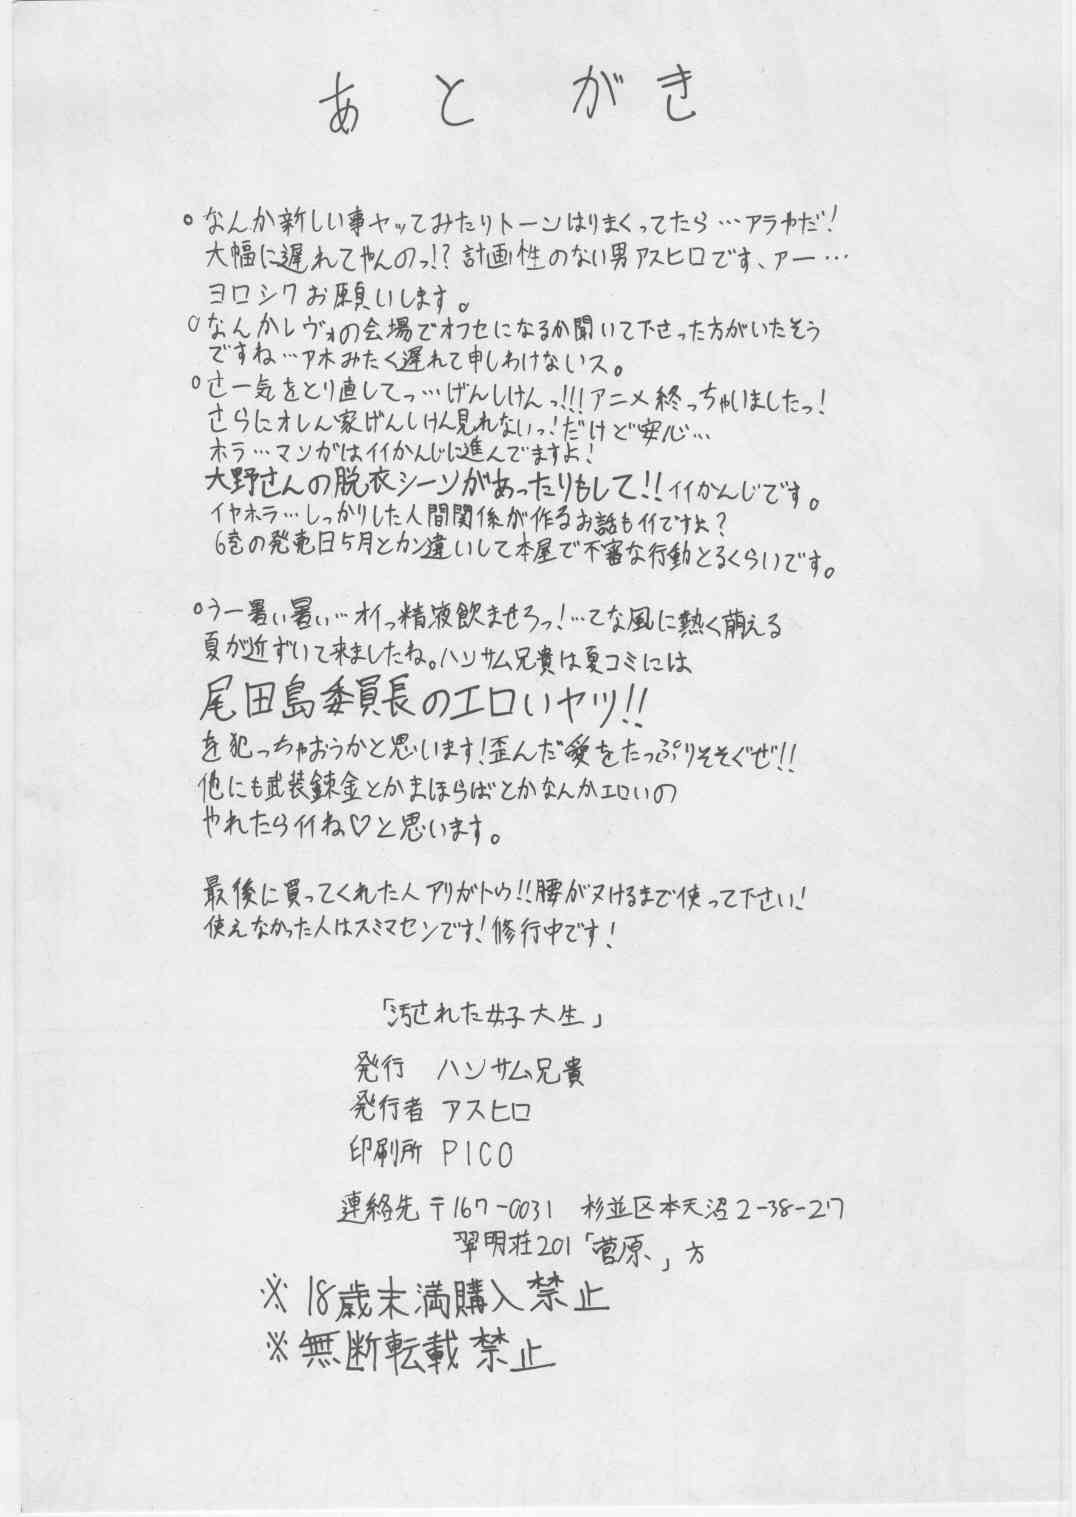 あとがき
○なんか新しい事ヤッてみたりトーンはりまくってたら…アラやだ！
大幅に遅れてやんのっ!? 計画性のない男アスヒロです、アー…
ヨロシクお願いします。
○なんかレヴォの会場でオフセになるか聞いて下さった方がいたそう
ですね…アホみたく遅れて申しわけないス。
○さー気をとり直してっ…げんしけんっ!!!アニメ終っちゃいましたっ！
さらにオレん家げんしけん見れないっ！だけど安心…
ホラ…マンガはイイかんじに進んでますよ！
大野さんの脱衣シーンがあったりもして!!イイかんじです。
イヤホラ…しっかりした人間関係が作るお話もイイですよ？
6巻の発売日5月とカン違いして本屋で不審な行動とるくらいです。
○うー暑い暑い…オイっ精液飲ませろっ！…てな風に熱く萌える
夏が近ずいて来ましたね。ハンサム兄貴は夏コミには
尾田島委員長のエロいヤツ!!
を犯っちゃおうかと思います！歪んだ愛をたっぷりそそぐぜ!!
他にも武装錬金とかまほらばとかなんかエロいの
やれたらイイね♡と思います。
最後に買ってくれた人アリガトウ!!腰がヌけるまで使って下さい！
使えなかった人はスミマセンです！修行中です！
「汚された女子大生」
発行 ハンサム兄貴
発行者 アスヒロ
印刷所 PICO
連絡先 〒167-0031 杉並区本天沼2-38-27
翠明荘201「菅原」方
※18歳未満購入禁止
※無断転載禁止